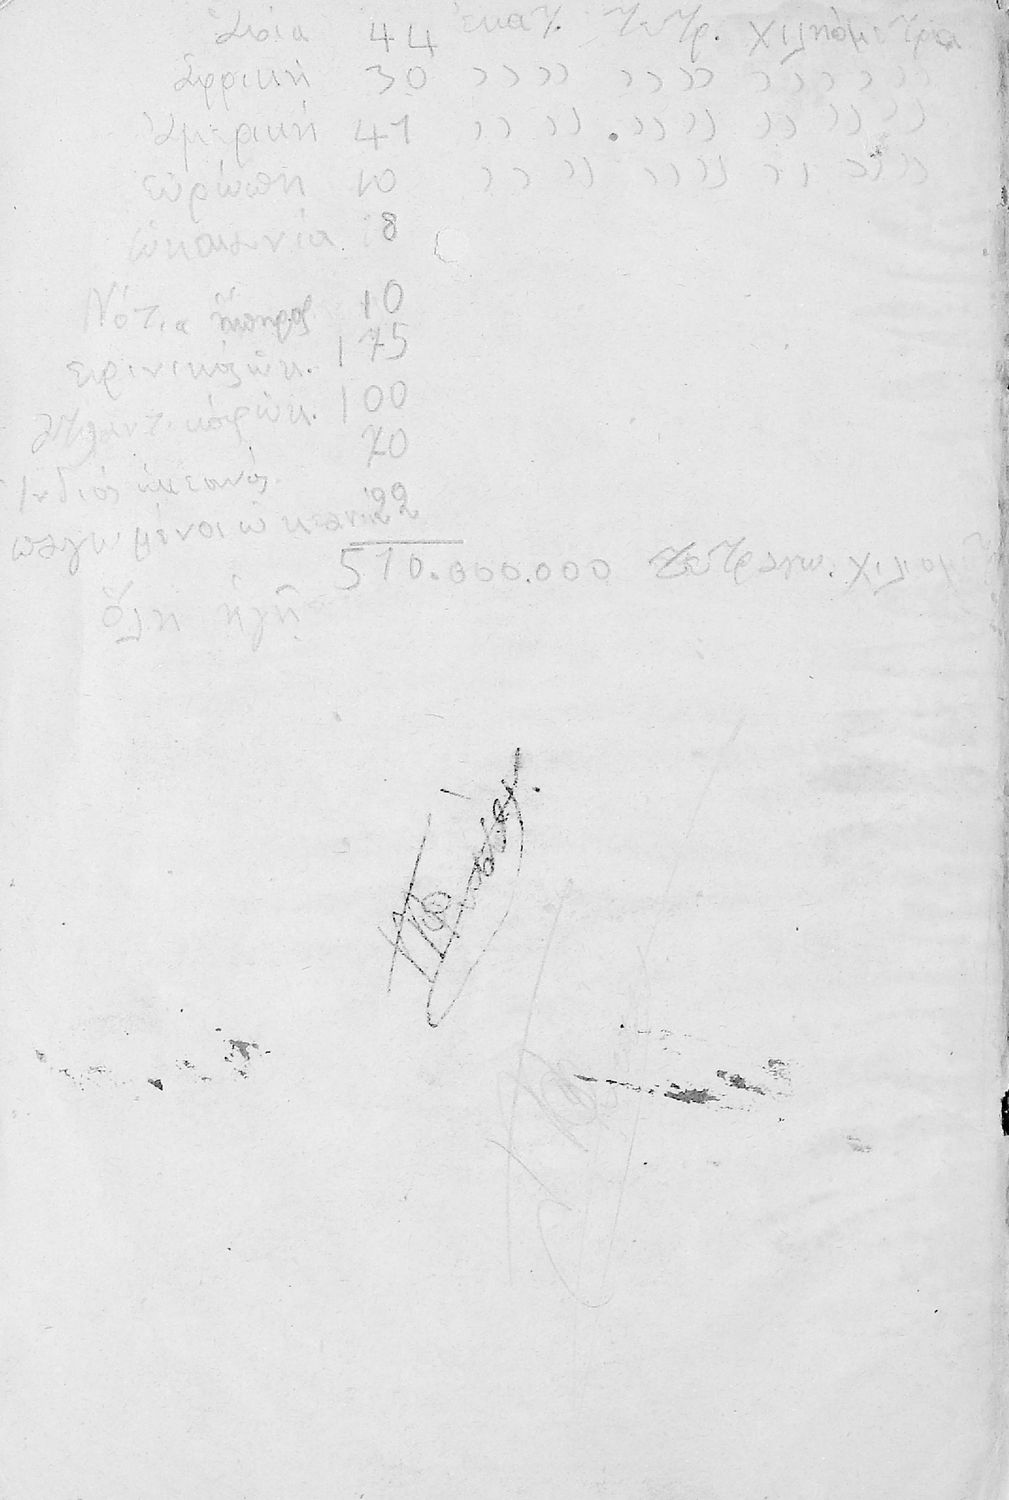 Ἀσία 44 ἑκατ. τετρ. χιλιόμετρα
Ἀφρική 30 ›››› ›››› ›››››››
Ἀμερική 41 ›››› ›››› ››››››
εὐρώπη 10 ›››› ›››› ››››››
ὠκεανία 8
Νότια ἤπειρος 10
εἰρινικός ὠκ. 175
Ἀτλαντικός ὠκ. 100
Ἰνδικός ὠκεανός 70
παγωμένοι ὠκεανοί 22
510.000.000 τετραγω. χιλιομ
ὅλη ἡ γῆ